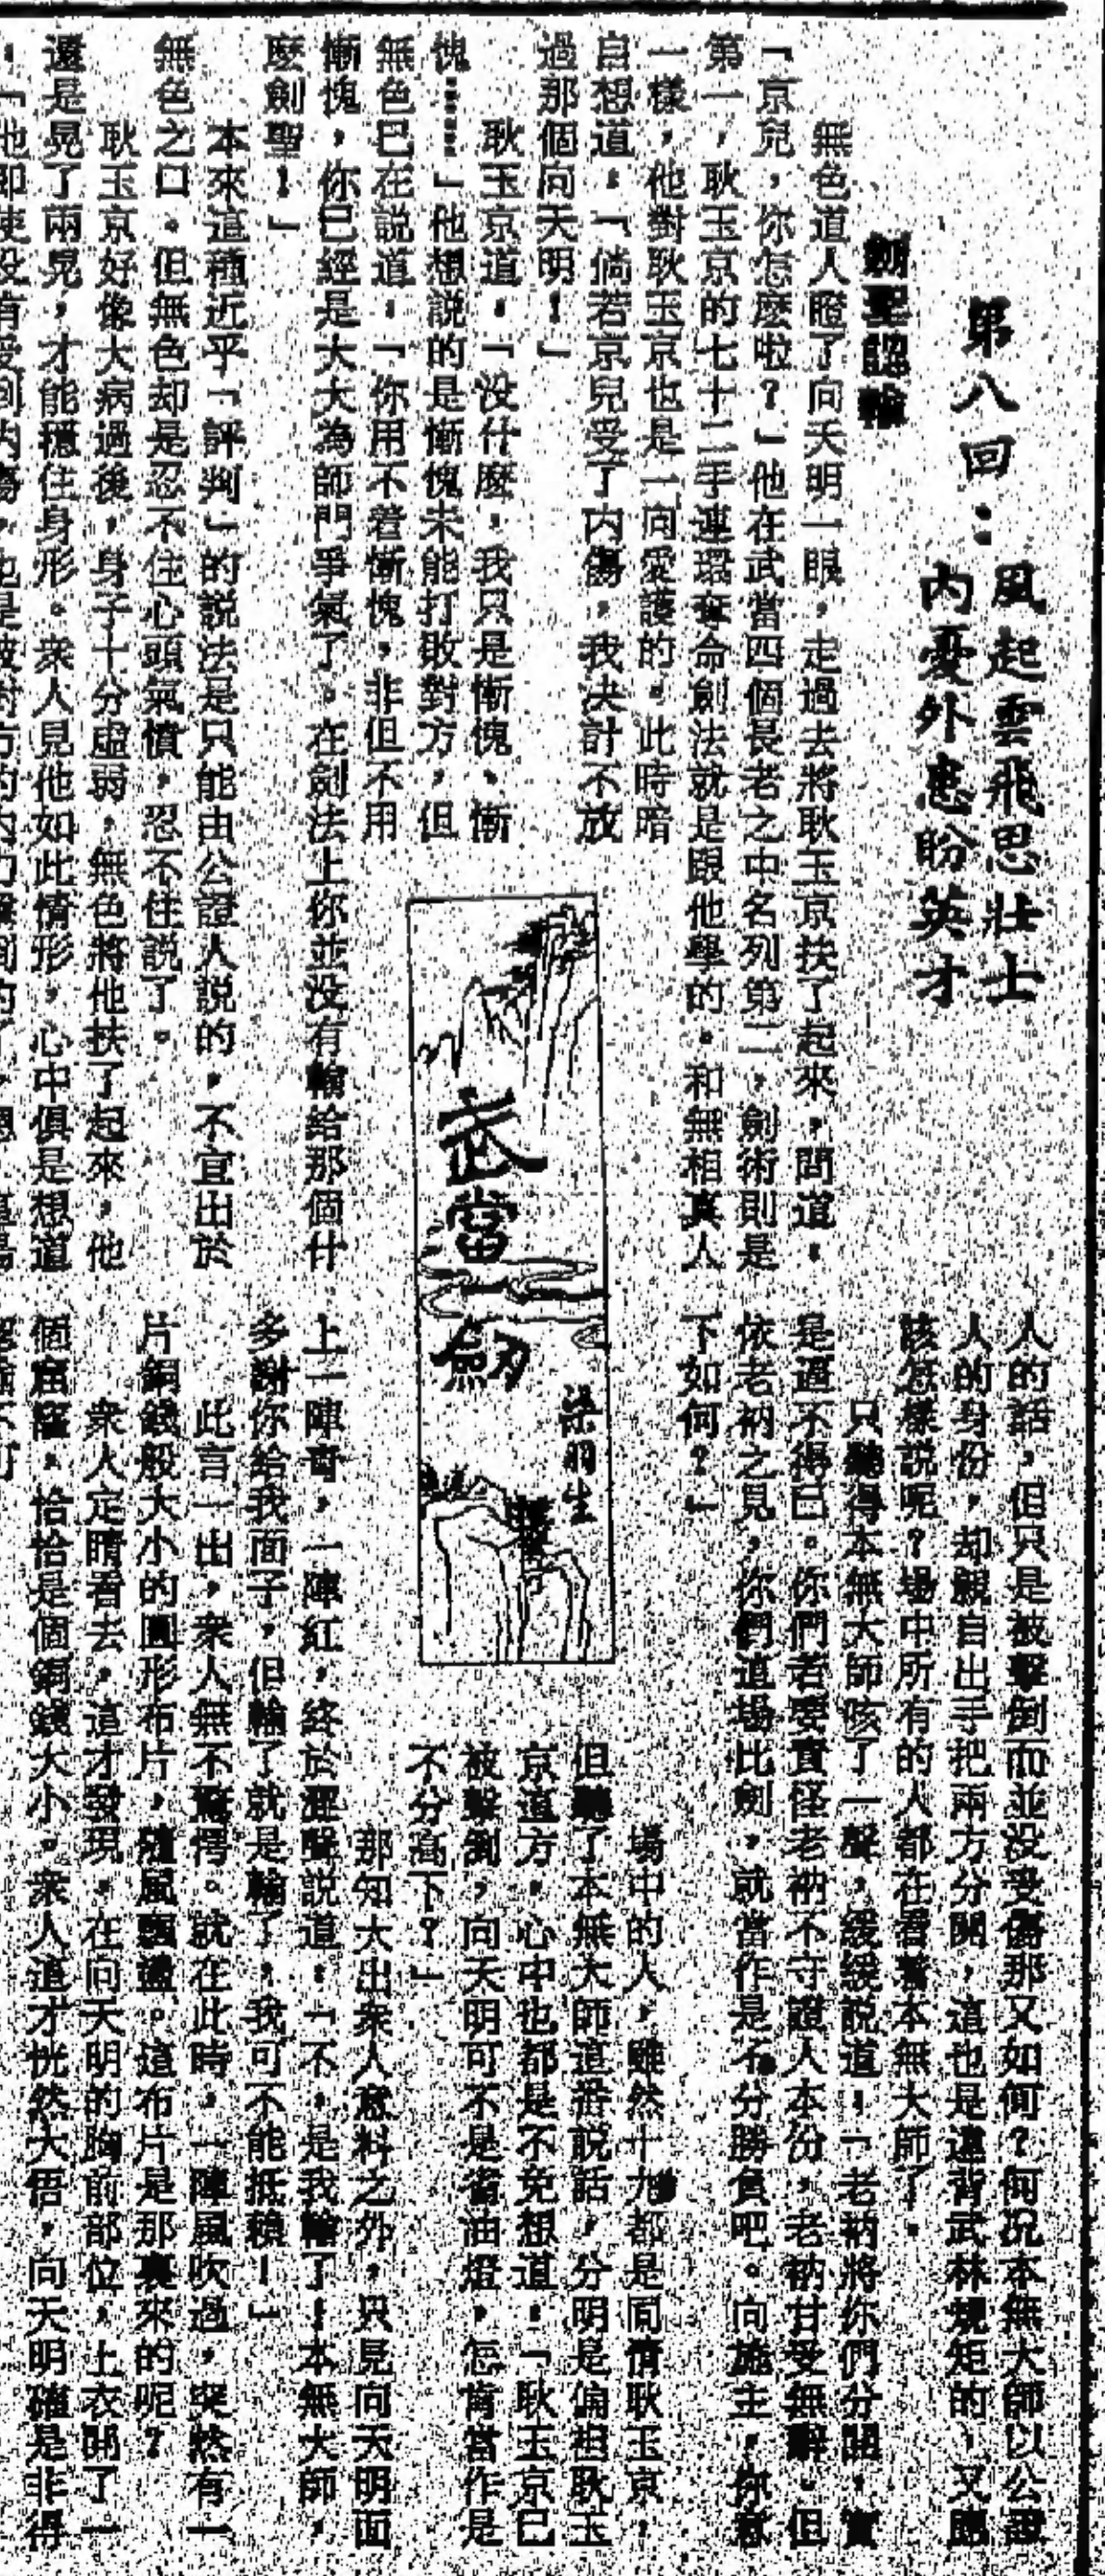 第八回：
風起雲飛思壯士
內憂外患盼英才
劍聖認輸
無色道人瞪了向天明一眼，走過去將耿玉京扶了起來，問道：
「京兒，你怎麽啦？」他在武當四個長老之中名列第二，劍術則是
第一，耿玉京的七十二手連環奪命劍法就是跟他學的。和無相真人
一樣，他對耿玉京也是一向愛護的。此時暗
自想道：「倘若京兒受了內傷，我決計不放
過那個向天明！」
耿玉京道：「没什麽，我只是慚愧、慚
愧……」他想説的是慚愧未能打敗對方，但
無色已在説道：「你用不着慚愧，非但不用
慚愧，你已經是大大為師門爭氣了。在劍法上你並没有輸給那個什
麽劍聖！」
本來這種近乎「評判」的説法是只能由公證人説的，不宜出於
無色之口。但無色却是忍不住心頭氣憤，忍不住説了。
耿玉京好像大病過後，身子十分虛弱，無色將他扶了起來，他
還是晃了兩晃，才能穩住身形。衆人見他如此情形，心中俱是想道
：「他即使没有受到內傷，也是被對方的內力擊倒的了，
武當一劍
梁羽生
人的話，但只是被擊倒而並没受傷那又如何？何況本無大師以公證
人的身份，却親自出手把兩方分開，這也是違背武林規矩的，又應
該怎樣説呢？場中所有的人都在看着本無大師了。
只聽得本無大師咳了一聲，緩緩説道：「老衲將你們分開，實
是逼不得已。你們若要責怪老衲不守證人本份，老衲甘受無辭。但
依老衲之見，你們這場比劍，就當作是不分勝負吧。向施主，你意
下如何？」
場中的人，雖然十九都是同情耿玉京，
但聽了本無大師這番説話，分明是偏袒耿玉
京這方，心中也都是不免想道：「耿玉京已
被擊倒，向天明可不是省油燈，怎肯當作是
不分高下？」
那知大出衆人意料之外，只見向天明面
上一陣青，一陣紅，終於澀聲説道：「不，是我輸了！本無大師，
多謝你給我面子，但輸了就是輸了，我可不能抵賴！」
此言一出，衆人無不驚愕。就在此時，一陣風吹過，突然有一
片銅錢般大小的圓形布片，隨風飄盪。這布片是那裏來的呢？
衆人定睛看去，這才發現，在向天明的胸前部位，上衣開了一
個窟窿，恰恰是個銅錢大小。衆人這才恍然大悟，向天明確是非得